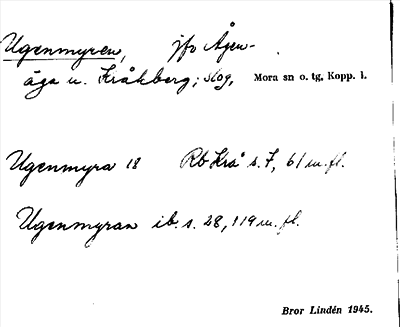 Ugenmyren, jfo Ågen-
äga u. Kråkberg; skog, Mora sn o. tg, Kopp. l.
Ugenmyra 18 Rb Krå s. 7, 61 m. fl.
Ugenmyran ib. s. 28, 119 m. fl.
Bror Lindén 1945.